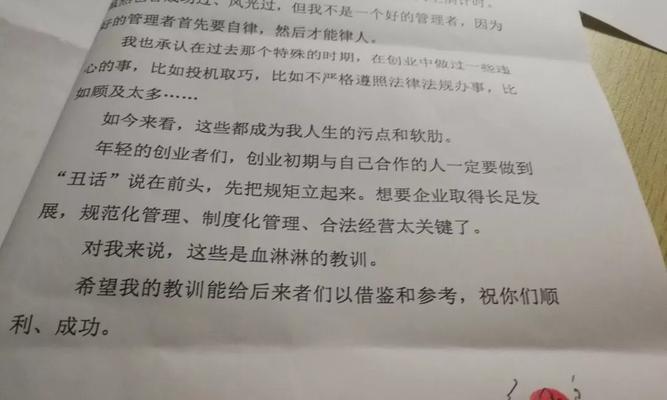 虽然也曾成功过、风光过，但我不是一个好的管理者，因为
好的管理者首先要自律，然后才能律人。
我也承认在过去那个特殊的时期，在创业中做过一些违
心的事，比如投机取巧，比如不严格遵照法律法规办事，比
如顾及太多……
如今来看，这些都成为我人生的污点和软肋。
年轻的创业者们，创业初期与自己合作的人一定要做到
“丑话”说在前头，先把规矩立起来。想要企业取得长足发
展，规范化管理、制度化管理、合法经营太关键了。
对我来说，这些是血淋淋的教训。
希望我的教训能给后来者们以借鉴和参考，祝你们顺
利、成功。